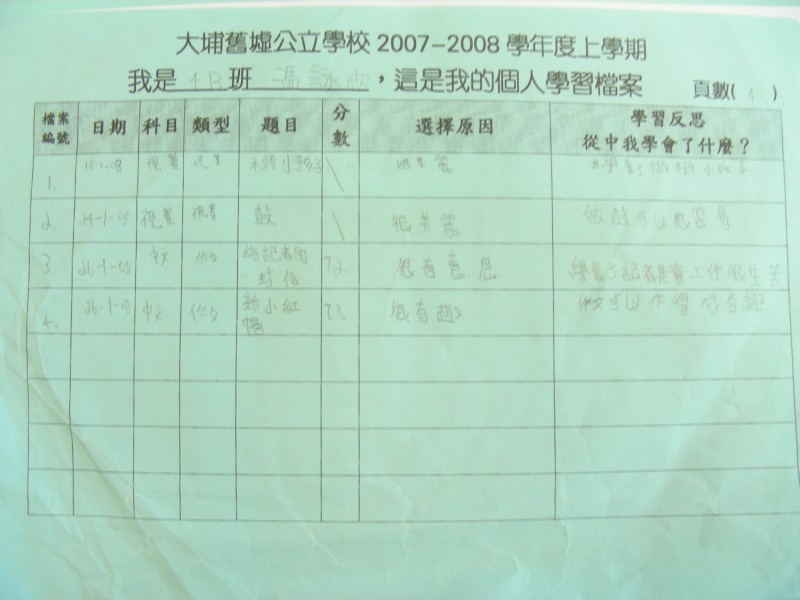 大埔舊墟公立學校 2007-2008 學年度上學期
我是 班 ,這是我的個人學習檔案 頁數( )
檔案編號 日期 科目 類型 題目 分數 選擇原因 學習反思 從中我學會了什麼?
1. 視藝
2. 24-1-08 視藝 鼓 \ 很美麗 做鼓可以很容易
3. 中文 作文 一封信 72 很有意思 學會了記者其實工作很辛苦
4. 中文 作文 新小紅帽 73 很有趣 作文可以作得很有趣